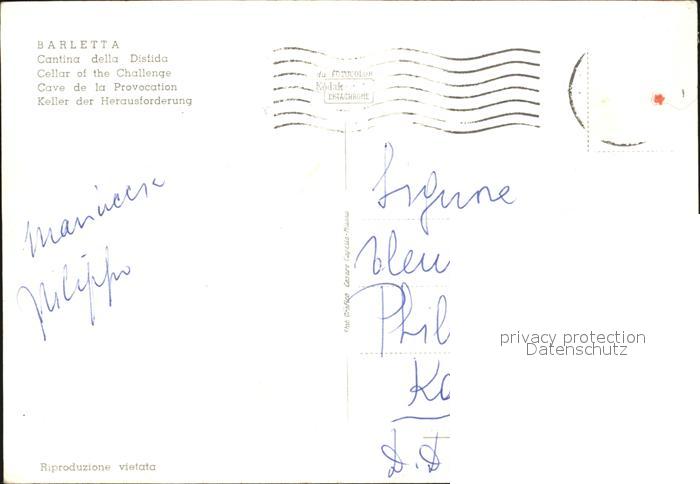 BARLETTA
Cantina della Disfida
Cellar of the Challenge
Cave de la Provocation
Keller der Herausforderung
da FOTOCOLOR
Kodak
EKTACHROME
Signore
Phil
Filippo
Ka
D.D
privacy protection
Datenschutz
Riproduzione vietata